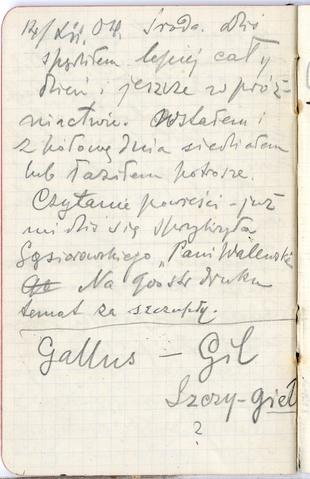 14/XII 04. Środa. dziś
spędziłem lepiej cały
dzień i jeszcze w próż-
niactwie. Wstałem i
z połową dnia siedziałem
lub łaziłem potrosze.
Czytanie powieści – już
mi dziś się sprzykrzyła
Gąsiorowskiego „Pani Walewska"
Na 900 str druku
temat za szczupły.
Gallus – Gil
Szczy-gieł
?